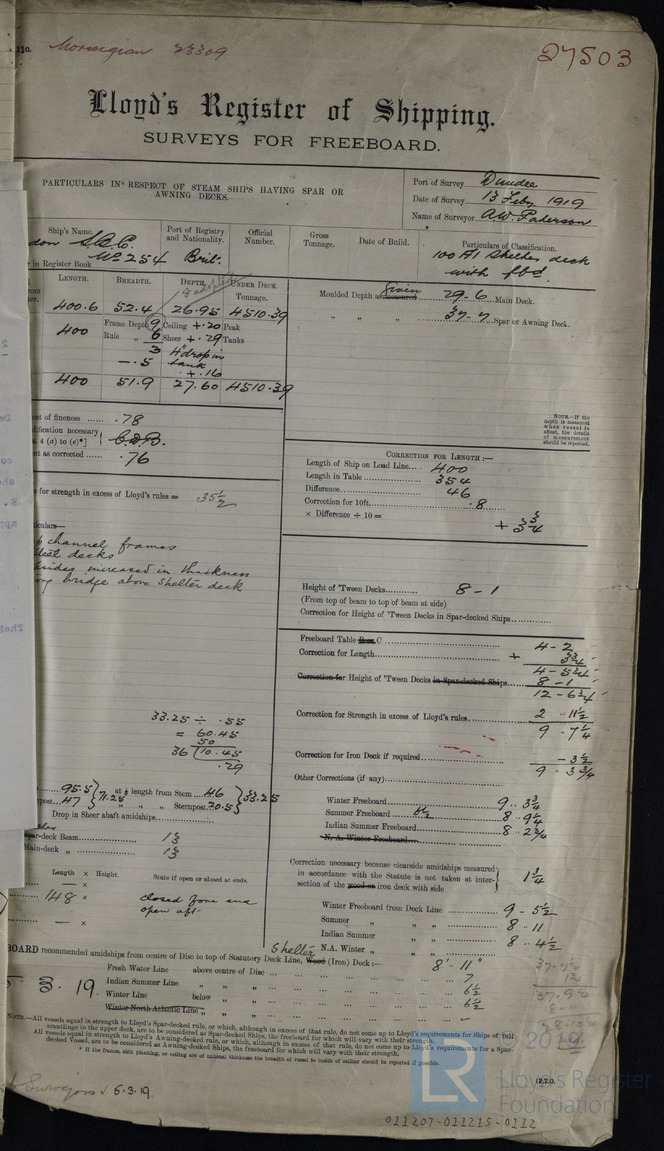 Norwegian 23309
27503
Lloyd's Register of Shipping.
SURVEYS FOR FREEBOARD.
PARTICULARS IN RESPECT OF STEAM SHIPS HAVING SPAR OR AWNING DECKS.
Port of Survey Dundee
Date of Survey 13 Feby. 1919
Name of Surveyor A.W. Paterson
Ship's Name.
Port of Registry and Nationality.
Official Number.
Gross Tonnage.
Date of Build.
Particulars of Classification.
No 254
Brit.
100 A1 Shelter deck
with fbd.
in Register Book
LENGTH. BREADTH. DEPTH. UNDER DECK Tonnage.
400.6 52.4 26.95 4510.39
400 Frame Depth 9 Ceiling + .20 Peak
Rule " 6 Sheer + .29 Tanks
3 4" drop in
- .5 tank
+ .16
400 51.9 27.60 4510.39
Moulded Depth as measured given 29.6 Main Deck.
" " " 37.7 Spar or Awning Deck.
NOTE.—If the depth is measured when vessel is afloat, the details of measurement should be reported.
of fineness ...... .78
necessary
4 (a) to (e)*]
as corrected ...... .76
for strength in excess of Lloyd's rules = 35½
channel frames
decks
increased in thickness
bridge above shelter deck
CORRECTION FOR LENGTH :—
Length of Ship on Load Line 400
Length in Table 354
Difference 46
Correction for 10ft. .8
× Difference ÷ 10 = + 3¾
Height of 'Tween Decks 8 - 1
(From top of beam to top of beam at side)
Correction for Height of 'Tween Decks in Spar-decked Ships
Freeboard Table C 4 - 2
Correction for Length + 3¾
4 - 5¾
Correction for Height of 'Tween Decks in Spar-decked Ships 8 - 1
12 - 6¾
Correction for Strength in excess of Lloyd's rules 2 .. 11½
9 .. 7¼
Correction for Iron Deck if required - 3½
9 . 3¾
Other Corrections (if any)
33.25 ÷ .55
= 60.45
50
36 10.45
.29
95.5 71.25 at ¼ length from Stem 46 33.25
post 47 " " " Sternpost 20.5
Drop in Sheer abaft amidships
Spar-deck Beam
Main-deck "
Length × Height. State if open or closed at ends.
— ×
148 × closed fore end
open aft.
— ×
Winter Freeboard 9 .. 3¾
Summer Freeboard 6½ 8 .. 9¼
Indian Summer Freeboard 8 .. 2¾
N. A. Winter Freeboard
Correction necessary because clearside amidships measured in accordance with the Statute is not taken at intersection of the wood or iron deck with side } 1¾
Winter Freeboard from Deck Line 9 - 5½
Summer " " " 8 .. 11
Indian Summer " " 8 .. 4½
N.A. Winter " " "
BOARD recommended amidships from centre of Disc to top of Statutory Deck Line, Shelter Wood (Iron) Deck :— 8' - 11"
Fresh Water Line above centre of Disc 7
Indian Summer Line " " 6½
Winter Line below " 6½
Winter North Atlantic Line " " —
3. 19.
NOTE.—All vessels equal to Lloyd's Spar-decked rule, or which, although in excess of that rule, do not come up to Lloyd's requirements for Ships of full scantlings to the upper deck, are to be considered as Spar-decked Ships, the freeboard for which will vary with their strength.
All vessels equal in strength to Lloyd's Awning-deck rule, or which, although in excess of that rule, do not come up to Lloyd's requirements for a Spar-decked Vessel, are to be considered as Awning-decked Ships, the freeboard for which will vary with their strength.
* If the frames, skin planking, or ceiling are of unusual thickness the breadth of vessel to inside of ceiling should be reported if possible.
P.T.O.
Surveyors 6.3.19.
LR
2019
Lloyd's Register
Foundation
011207-011215-0112